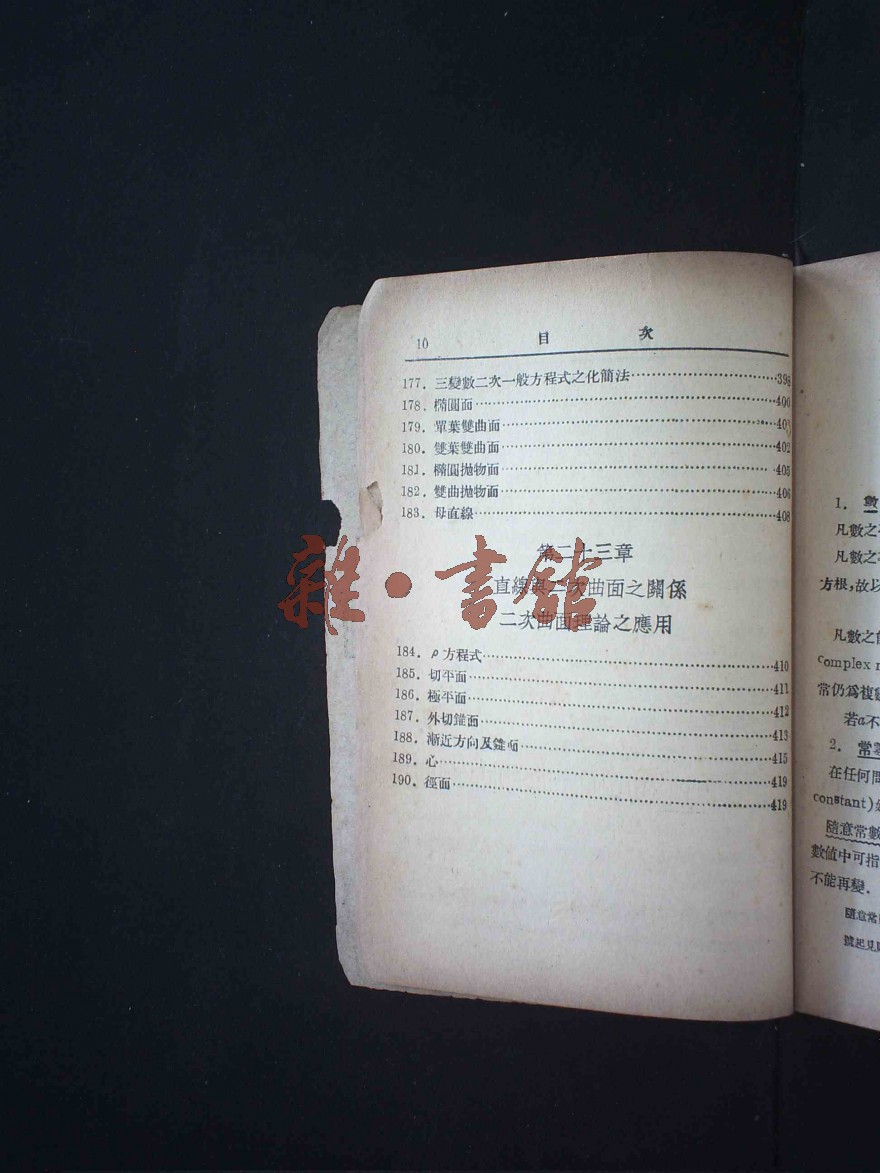 10 目 次
177. 三變數二次一般方程式之化簡法 398
178. 橢圓面 400
179. 單葉雙曲面 40
180. 雙葉雙曲面 402
181. 橢圓拋物面 405
182. 雙曲拋物面 406
183. 母直線 408
第二十三章
直線與二次曲面之關係
二次曲面理論之應用
184. ρ方程式 410
185. 切平面 411
186. 極平面 412
187. 外切錐面 413
188. 漸近方向及錐面 415
189. 心 419
190. 徑面 419
雜·書館
1. 數
凡數之
凡數之
方根,故以
凡數之
complex
常仍爲複
若a不
2. 常
在任何問
constant)
隨意常數
數值中可指
不能再變.
隨意常
號起見